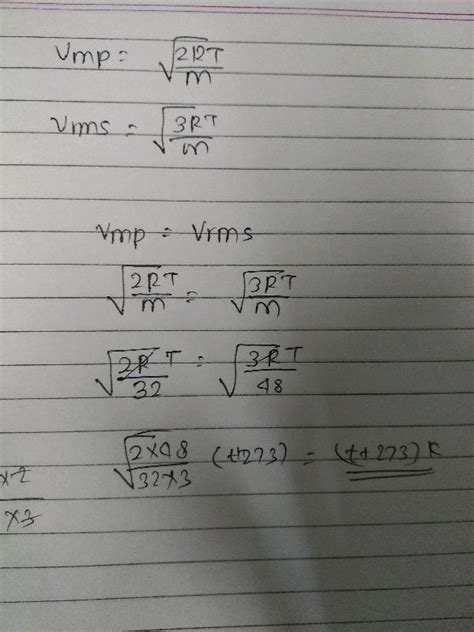 Vmp = √2RT/m
Vrms = √3RT/m
Vmp = Vrms
√2RT/m = √3RT/m
√2RT/32 = √3RT/48
√2×48/32×3 (t+273) = (t+273)K
×2
×3